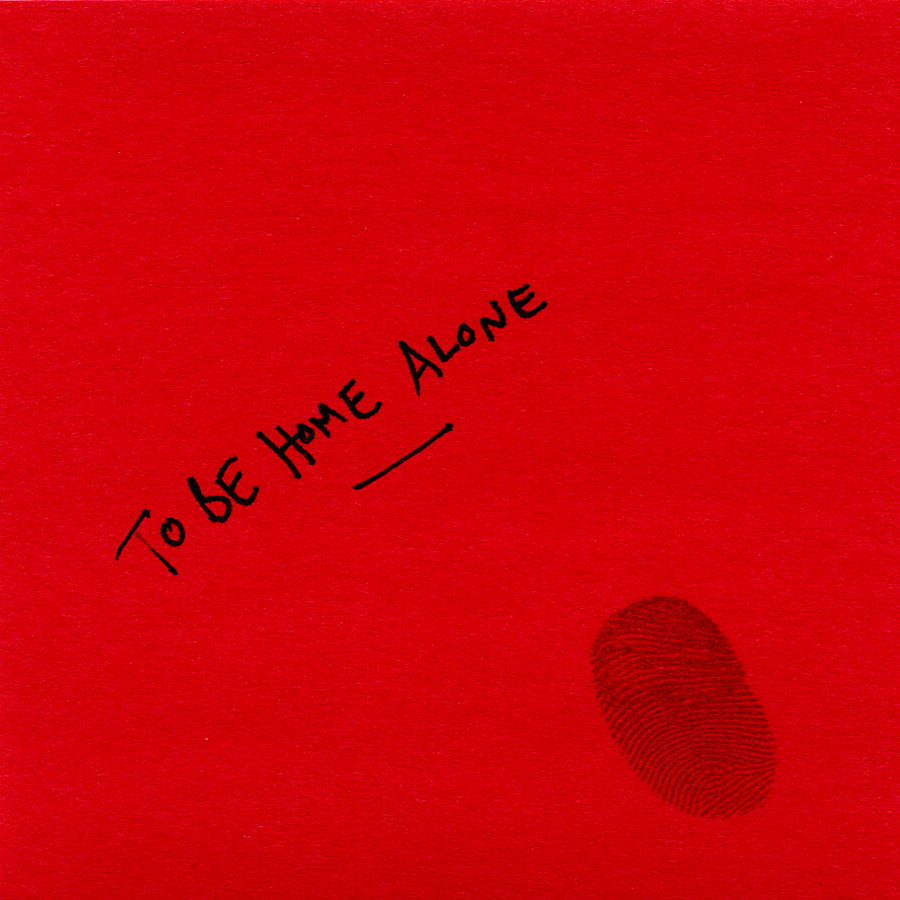 TO BE HOME ALONE